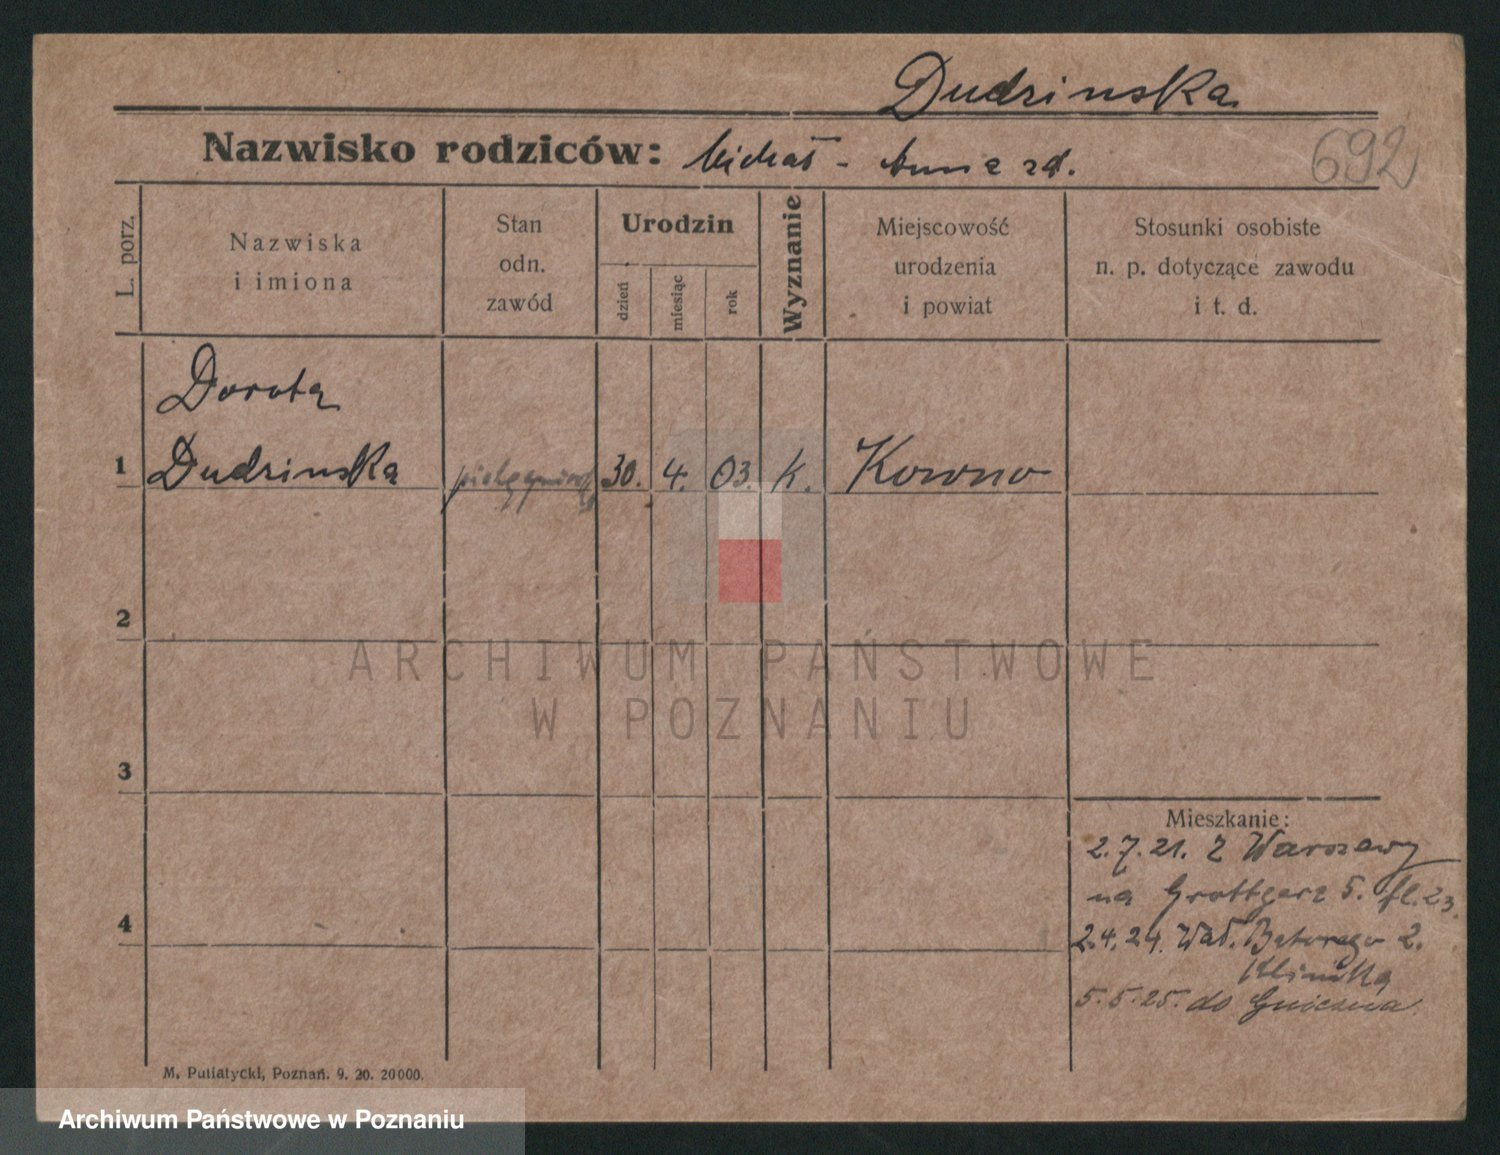 Dudzinska
Nazwisko rodziców: Michał - Anna zd.
692
L. porz.
Nazwiska
i imiona
Stan
odn.
zawód
Urodzin
dzień
miesiąc
rok
Wyznanie
Miejscowość
urodzenia
i powiat
Stosunki osobiste
n. p. dotyczące zawodu
i t. d.
Dorota
1 Dudzinska 30. 4. 03. k. Korono
2
3
4
Mieszkanie:
2.7.21. z Warszawy
na Grottgera 5. fl. 23.
2.4.24. Wał. Batorego 2.
Klinika
5.5.25. do Gniezna
M. Putiatycki, Poznań. 9. 20. 20000.
ARCHIWUM PAŃSTWOWE
W POZNANIU
Archiwum Państwowe w Poznaniu